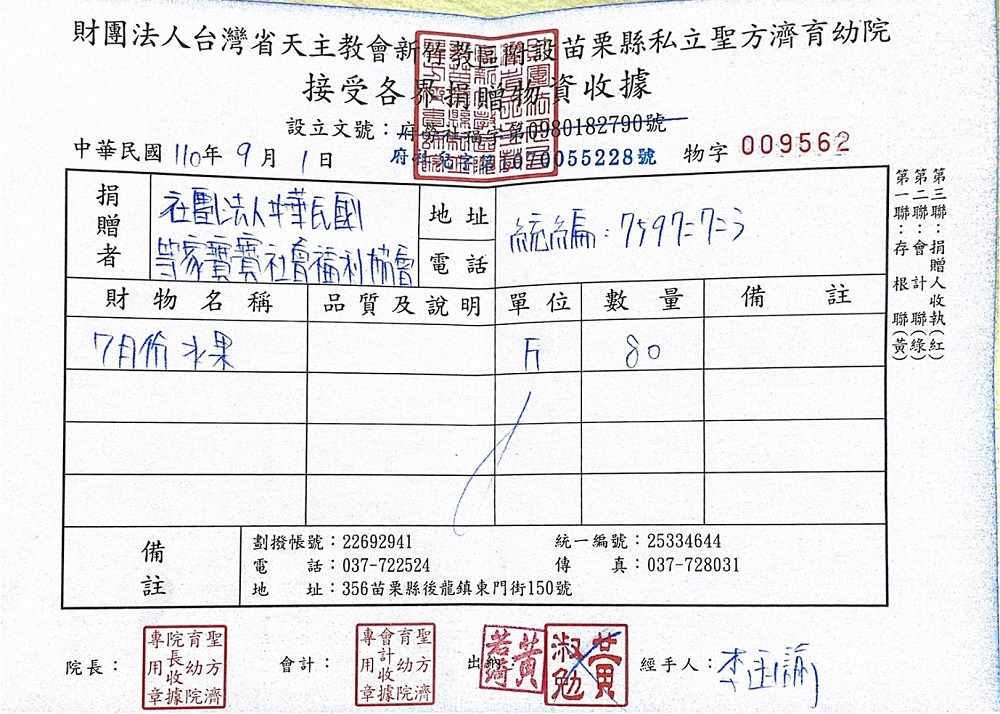 財團法人台灣省天主教會新竹教區附設苗栗縣私立聖方濟育幼院
接受各界捐贈物資收據
設立文號：府勞社福字第0980182790號
府社兒字第1070055228號
物字 009562
中華民國 110年 9月 1日
捐贈者
社團法人中華民國
等家寶寶社會福利協會
地址
電話
統編：75972723
財物名稱 品質及說明 單位 數量 備註
7月份 水果 斤 80
備註
劃撥帳號：22692941 統一編號：25334644
電話：037-722524 傳真：037-728031
地址：356苗栗縣後龍鎮東門街150號
第一聯：存根聯(黃)
第二聯：會計聯(綠)
第三聯：捐贈人收執(紅)
院長：
聖方濟育幼院院長收據專用章
會計：
聖方濟育幼院會計收據專用章
出納：
黃若綺
黃淑勉
經手人：